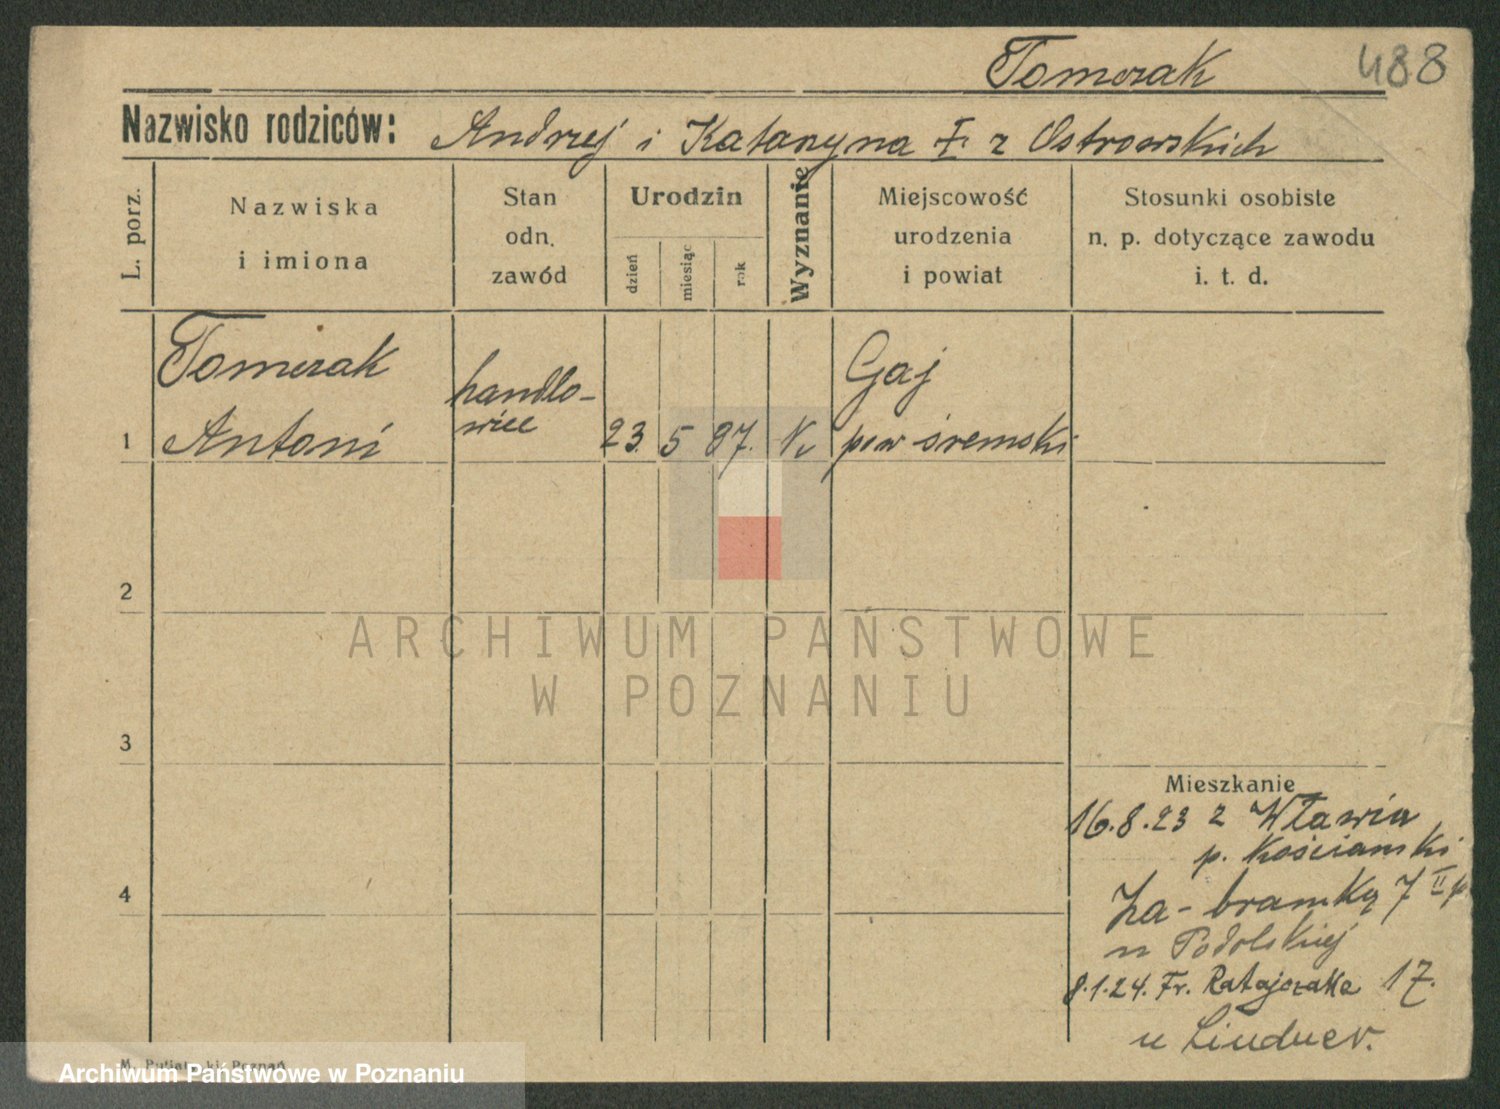 Tomczak 488
Nazwisko rodziców: Andrzej i Katarzyna z Ostrowskich
L. porz.
Nazwiska
i imiona
Stan
odn.
zawód
Urodzin
dzień
miesiąc
rok
Wyznanie
Miejscowość
urodzenia
i powiat
Stosunki osobiste
n. p. dotyczące zawodu
i. t. d.
1
Tomczak
Antoni
handlo-
wiec
23. 5 87.
Gaj
pow śremski
2
ARCHIWUM PAŃSTWOWE
W POZNANIU
3
Mieszkanie
16.8.23 z Wławia
p. Kościański
4
Za-bramką 7 II p
u Podolskiej
8.1.24. Fr. Ratajczaka 17.
u
M. Putiatycki Poznań
Archiwum Państwowe w Poznaniu